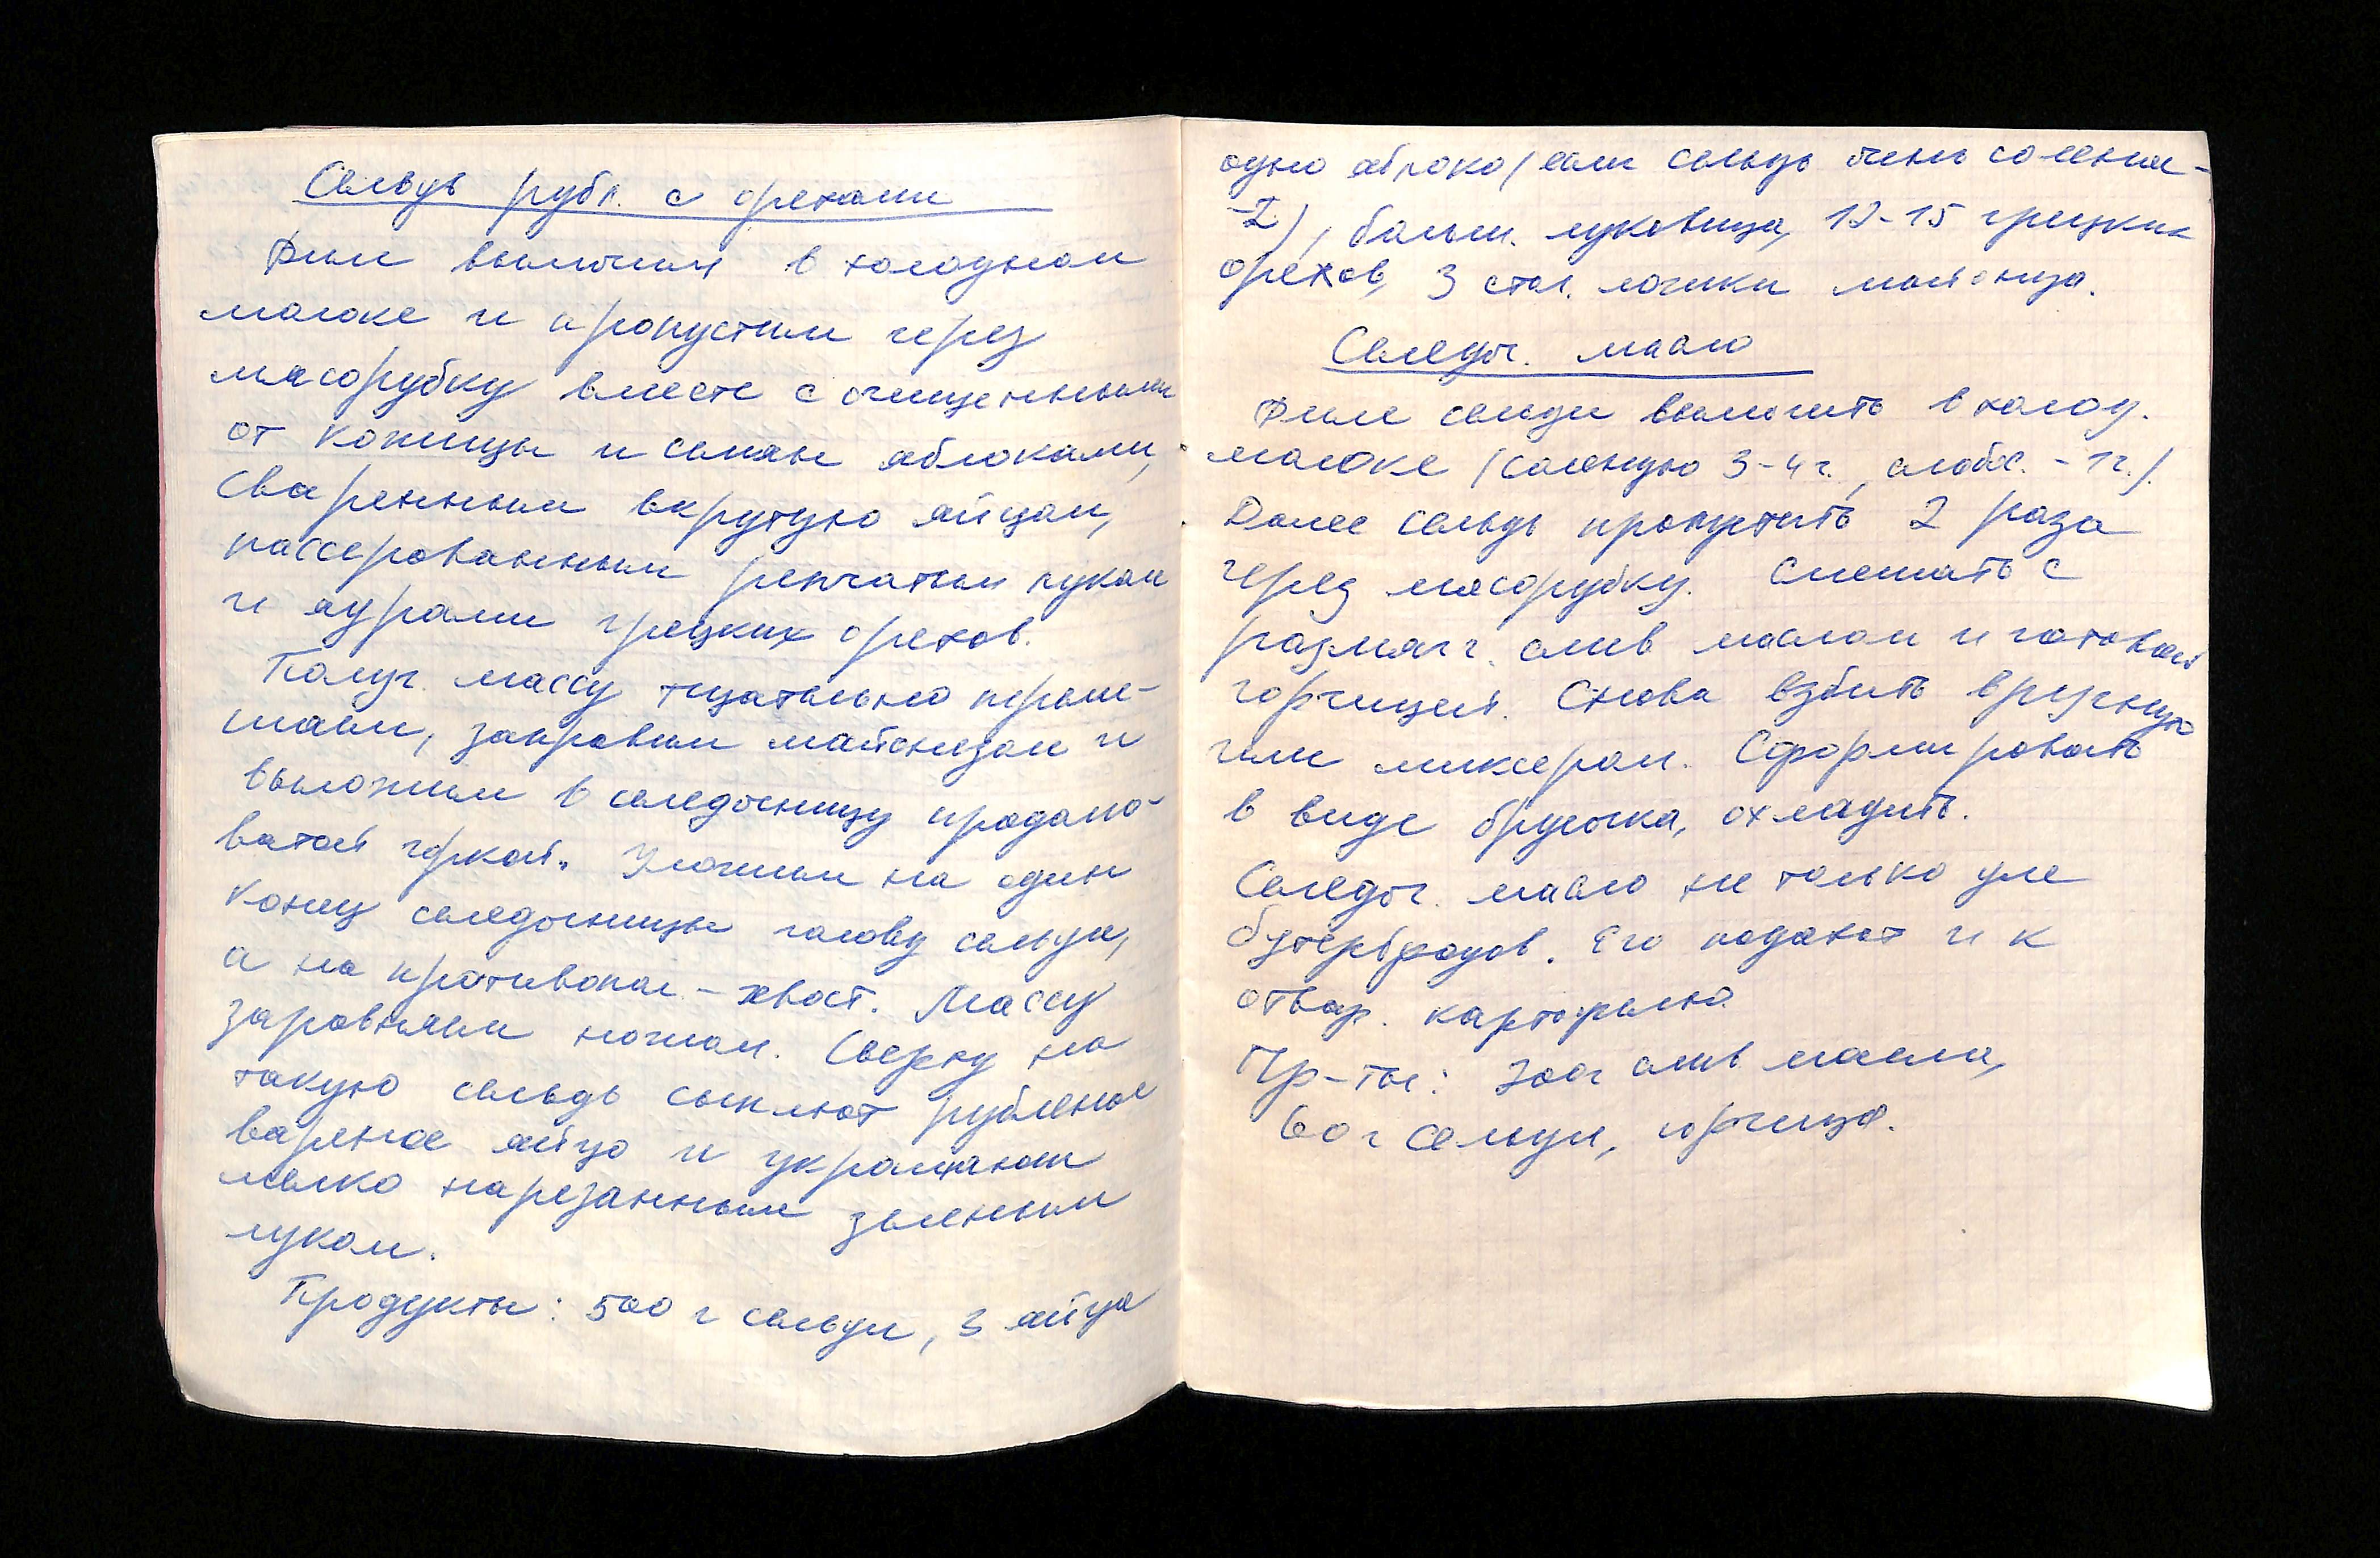 Сельдь рубл. с орехами
Филе вымочим в холодном
молоке и пропустим через
мясорубку вместе с очищенными
от кожицы и семян яблоками,
сваренными вкрутую яйцами,
пассерованным репчатым луком
и ядрами грецких орехов.
Получ. массу тщательно переме-
шаем, заправим майонезом и
выложим в селедочницу продолго-
ватой горкой. Уложим на один
конец селедочницы голову сельди,
а на противопол. - хвост. Массу
заровняем ножом. Сверху на
такую сельдь сыплют рубленое
вареное яйцо и украшают
мелко нарезанным зеленым
луком.
Продукты: 500 г сельди, 3 яйца
одно яблоко (если сельдь очень соленая -
- 2), больш. луковица, 12-15 грецких
орехов, 3 стол. ложки майонеза.
Селедоч. масло
Филе сельди вымочить в холод.
молоке (соленую 3-4 г., слабос. - 1 г.).
Далее сельдь пропустить 2 раза
через мясорубку. Смешать с
размягч. слив маслом и готовой
горчицей. Снова взбить вручную
или миксером. Сформировать
в виде брусочка, охладить.
Селедоч. масло не только для
бутербродов. Его подают и к
отвар. картофелю.
Пр-ты: 200г слив масла,
60 г сельди, горчица.